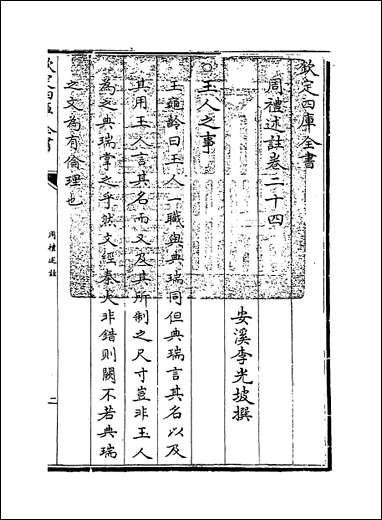 欽定四庫全書
周禮述註卷二十四
安溪李光坡撰
玉人之事
王應齡曰玉人一職與典瑞同但典瑞言其名以及
其用玉人言其名而又及其所制之尺寸豈非玉人
為之典瑞掌之乎然文經秦火非錯則闕不若典瑞
之文為有倫理也
欽定四庫全書
周禮述註